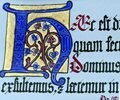 Hæc est d
quam fecit
Dominus
exultemus, & lætemur in